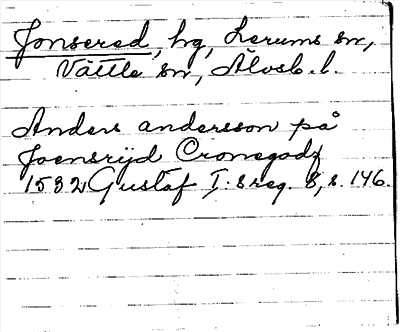 Jonsered, hg, Lerums sn,
Vättle sn, Älvsb. l.
Anders andersson på
Joensrijd Cronegodz
1532 Gustaf I:s reg. 8, s. 146.